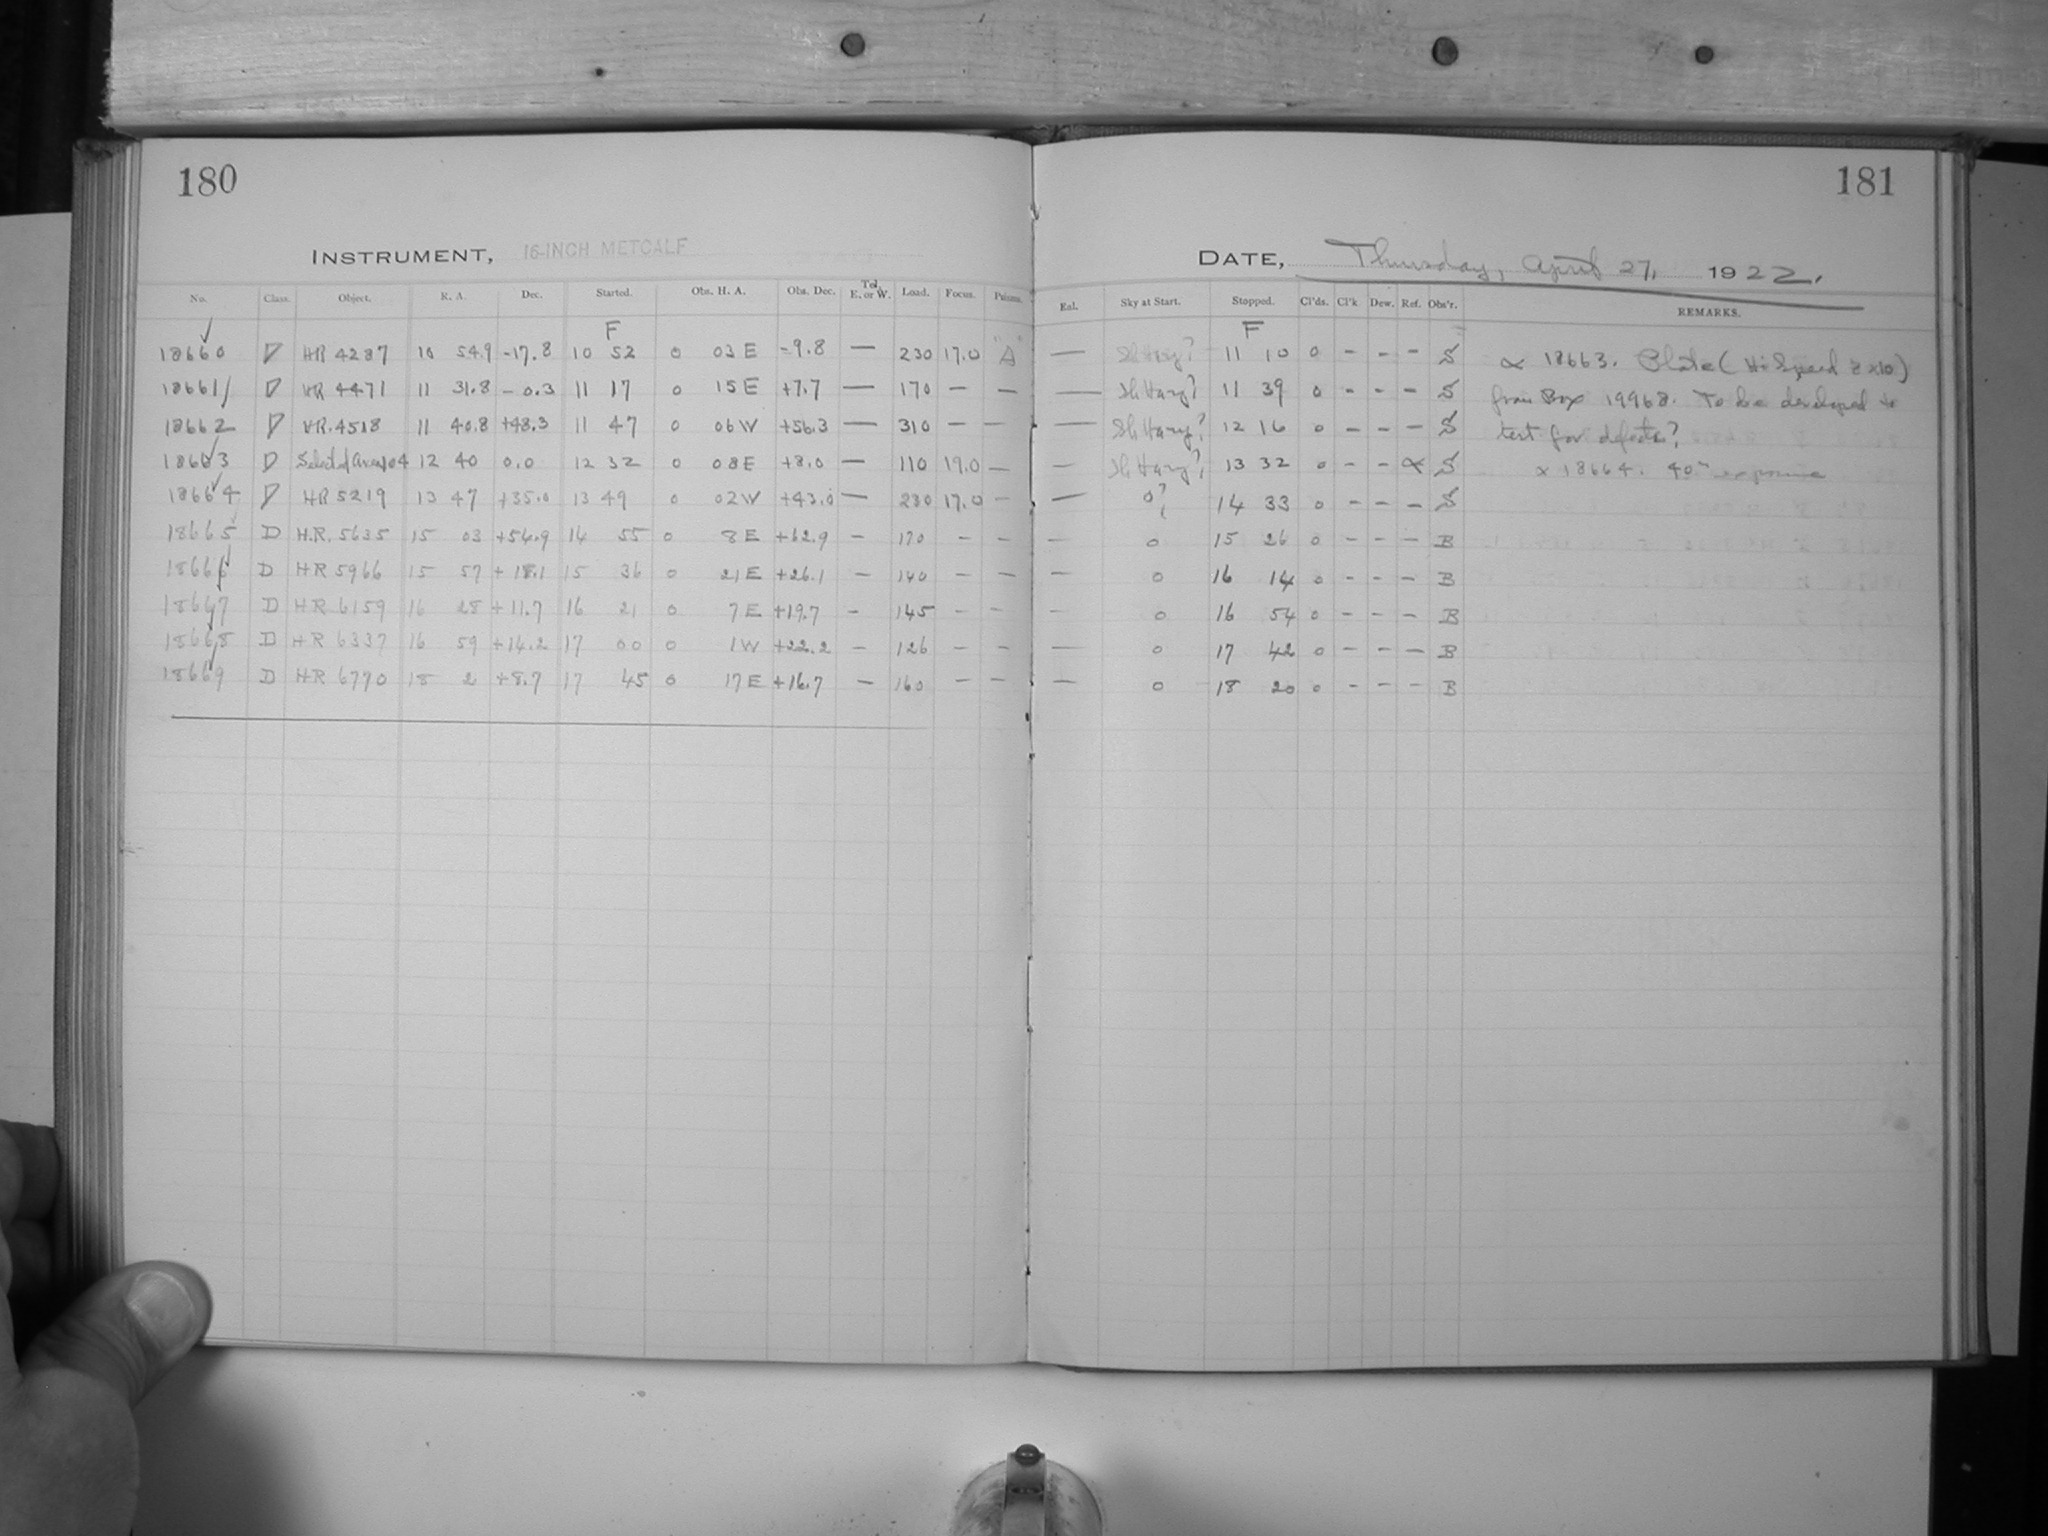 180
INSTRUMENT, 16-INCH METCALF
No. Class. Object. R. A. Dec. Started. Obs. H. A. Obs. Dec. Tel. E. or W. Load. Focus. Prisms.
F
18660 D HR 4287 10 54.9 -17.8 10 52 0 03 E -9.8 — 230 17.0 "A"
18661 D HR 4471 11 31.8 -0.3 11 17 0 15 E +7.7 — 170 — —
18662 D HR. 4518 11 40.8 +48.3 11 47 0 06 W +56.3 — 310 — —
18663 D Selected Area 104 12 40 0.0 12 32 0 08 E +8.0 — 110 19.0 —
18664 D HR 5219 13 47 +35.0 13 49 0 02 W +43.0 — 230 17.0 —
18665 D H.R. 5635 15 03 +54.9 14 55 0 8 E +62.9 — 170 — —
18666 D HR 5966 15 57 +18.1 15 36 0 21 E +26.1 — 140 — —
18667 D HR 6159 16 28 +11.7 16 21 0 7 E +19.7 — 145 — —
18668 D HR 6337 16 59 +14.2 17 00 0 1 W +22.2 — 126 — —
18669 D HR 6770 18 2 +8.7 17 45 0 17 E +16.7 — 160 — —
181
DATE, Thursday, April 27, 1922.
Enl. Sky at Start. Stopped. Cl'ds. Cl'k Dew. Ref. Obs'r. REMARKS.
F
— Sl. Hazy? 11 10 0 - - - S α 18663. Plate (Hi Speed 8 x 10)
— Sl. Hazy? 11 39 0 - - - S from Box 19968. To be developed to
— Sl. Hazy? 12 16 0 - - - S test for defects?
Sl. Hazy? 13 32 0 - - α S α 18664. 40m exposure
— 0? 14 33 0 - - - S
— 0 15 26 0 - - - B
— 0 16 14 0 - - - B
— 0 16 54 0 - - - B
— 0 17 42 0 - - - B
— 0 18 20 0 - - - B